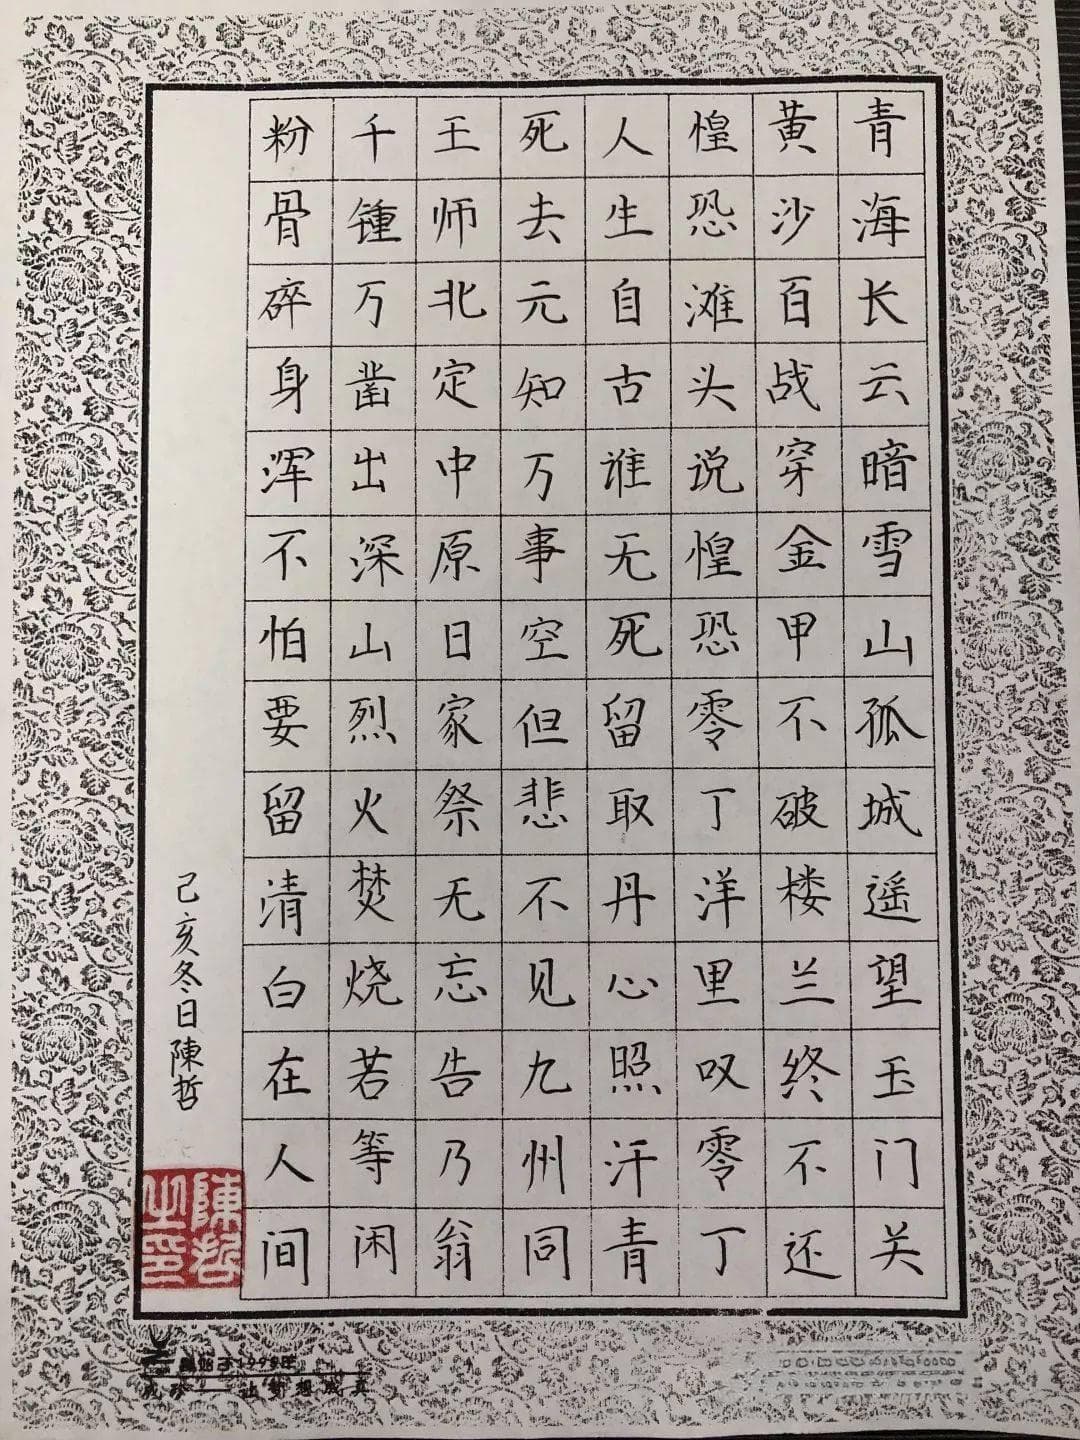 青海长云暗雪山孤城遥望玉门关
黄沙百战穿金甲不破楼兰终不还
惶恐滩头说惶恐零丁洋里叹零丁
人生自古谁无死留取丹心照汗青
死去元知万事空但悲不见九州同
王师北定中原日家祭无忘告乃翁
千锺万凿出深山烈火焚烧若等闲
粉骨碎身浑不怕要留清白在人间
己亥冬日陳哲
陳哲之印
始于1999年
让梦想成真